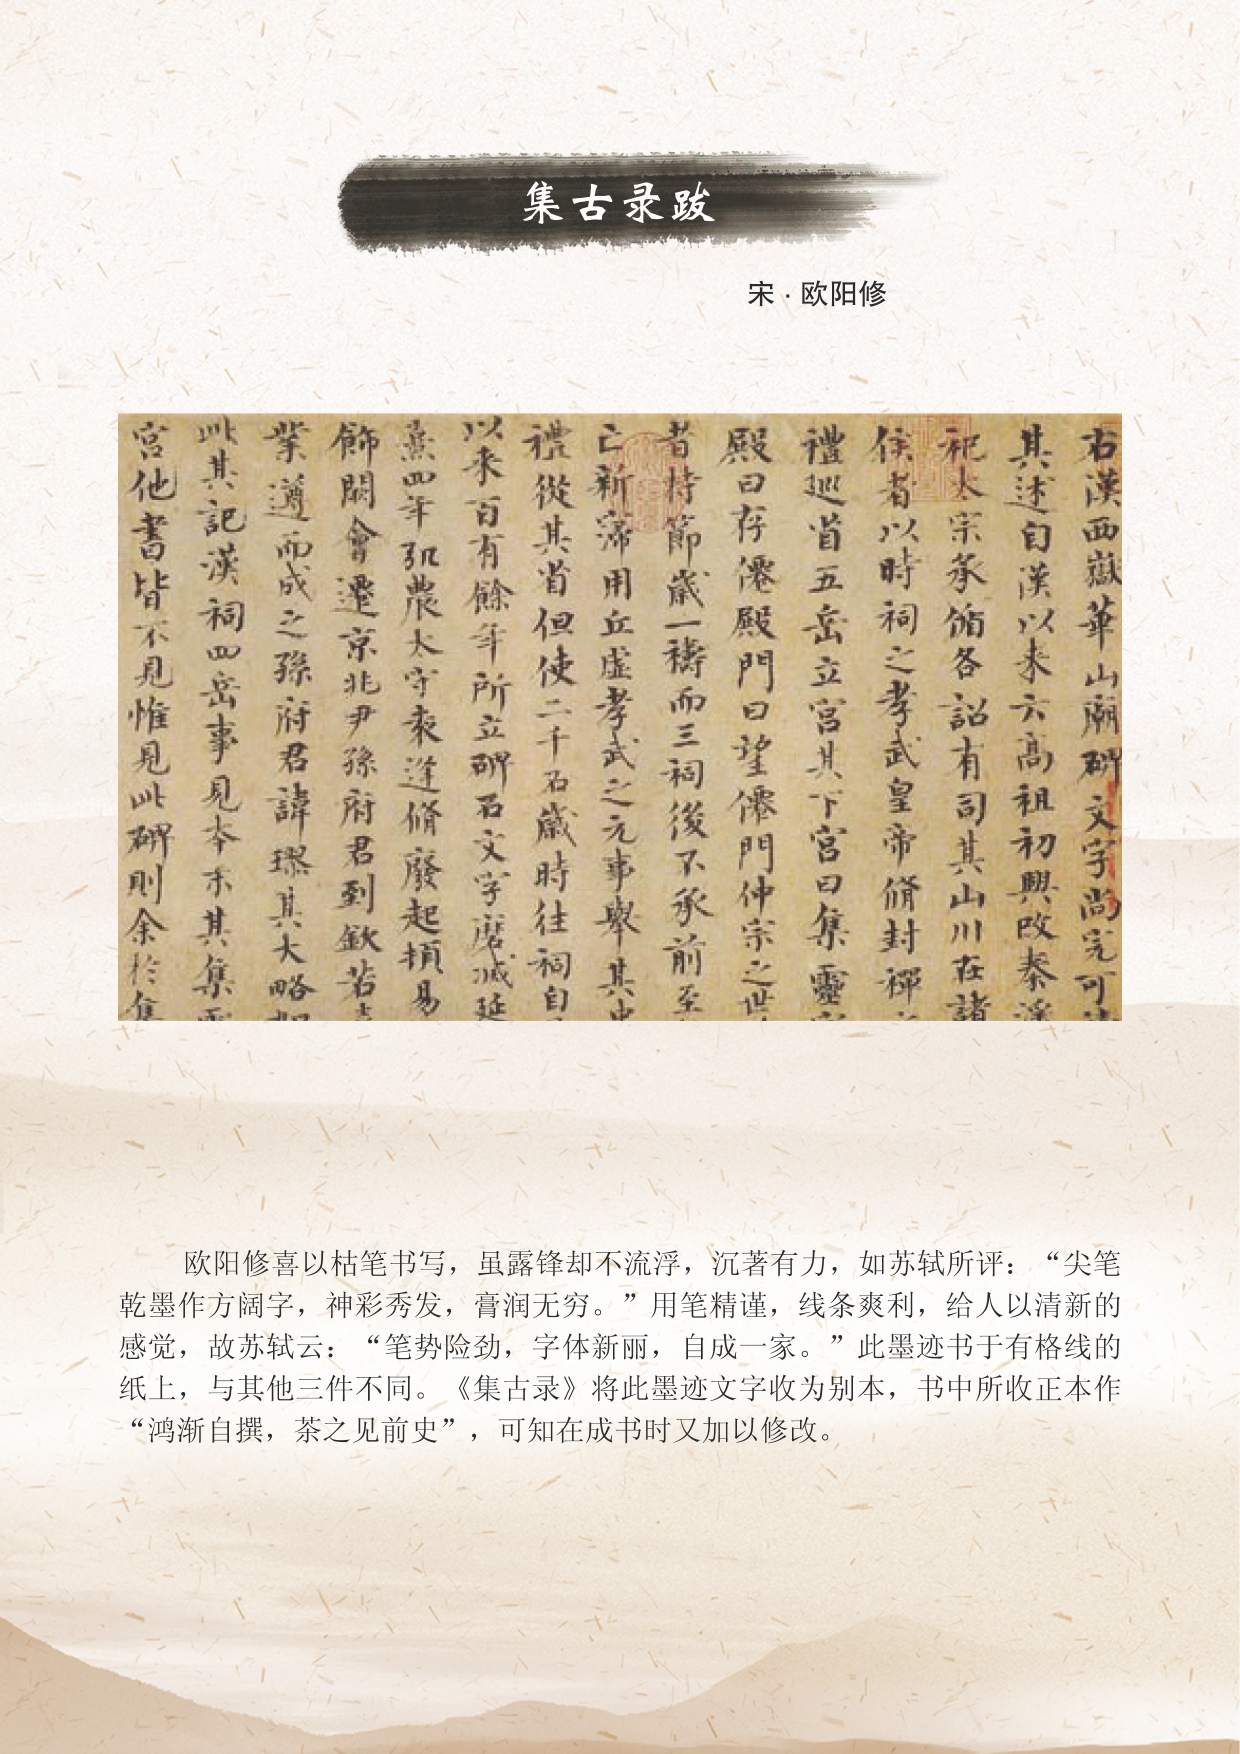 集古录跋
宋·欧阳修
右漢西嶽華山廟碑文字尚完可
其述自漢以来云高祖初興改秦淫
祀太宗承循各詔有司其山川在諸
侯者以時祠之孝武皇帝脩封禪
禮巡省五岳立宮其下宮曰集靈
殿曰存僊殿門曰望僊門仲宗之世
者持節歲一禱而三祠後不承前至
亡新寖用丘虛孝武之元事舉其中
禮從其省但使二千石歲時往祠自
以来百有餘年所立碑石文字磨滅延
熹四年弘農太守袁逢脩廢起頓易
飾闕會遷京兆尹孫府君到欽若
業遵而成之孫府君諱璆其大略如
此其記漢祠四岳事見本末其集靈
宮他書皆不見惟見此碑則余於集
欧阳修喜以枯笔书写，虽露锋却不流浮，沉著有力，如苏轼所评：“尖笔
乾墨作方阔字，神彩秀发，膏润无穷。”用笔精谨，线条爽利，给人以清新的
感觉，故苏轼云：“笔势险劲，字体新丽，自成一家。”此墨迹书于有格线的
纸上，与其他三件不同。《集古录》将此墨迹文字收为别本，书中所收正本作
“鸿渐自撰，茶之见前史”，可知在成书时又加以修改。